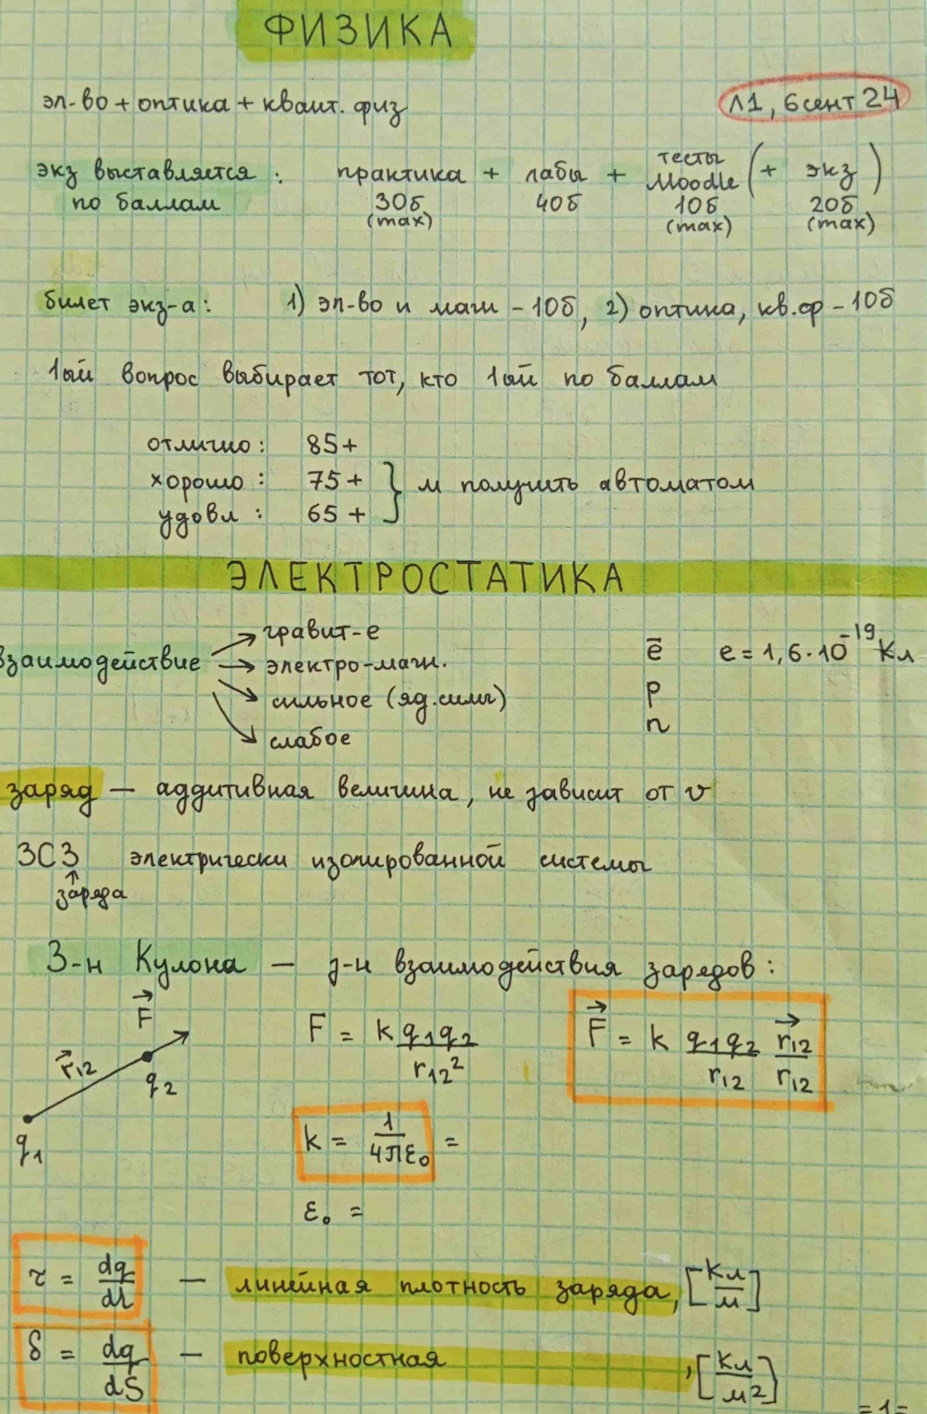 ФИЗИКА
эл-во + оптика + квант. физ
Л1, 6 сент 24
экз выставляется по баллам : практика 30б (max) + лабы 40б + тесты Moodle 10б (max) (+ экз 20б (max))
билет экз-а: 1) эл-во и магн - 10б, 2) оптика, кв.ф - 10б
1ый вопрос выбирает тот, кто 1ый по баллам
отлично: 85+
хорошо: 75+
удовл: 65+
} м получить автоматом
ЭЛЕКТРОСТАТИКА
взаимодействие
гравит-е
электро-магн.
сильное (яд.силы)
слабое
e̅ e = 1,6·10⁻¹⁹ Кл
p
n
заряд — аддитивная величина, не зависит от v
ЗСЗ электрически изолированной системы
↑
заряда
З-н Кулона — з-н взаимодействия зарядов:
F⃗
r⃗₁₂
q₂
q₁
F = k q₁q₂ / r₁₂²
F⃗ = k q₁q₂ / r₁₂ r⃗₁₂ / r₁₂
k = 1 / 4πε₀ =
ε₀ =
τ = dq / dl — линейная плотность заряда, [Кл / м]
δ = dq / dS — поверхностная , [Кл / м²]
=1=